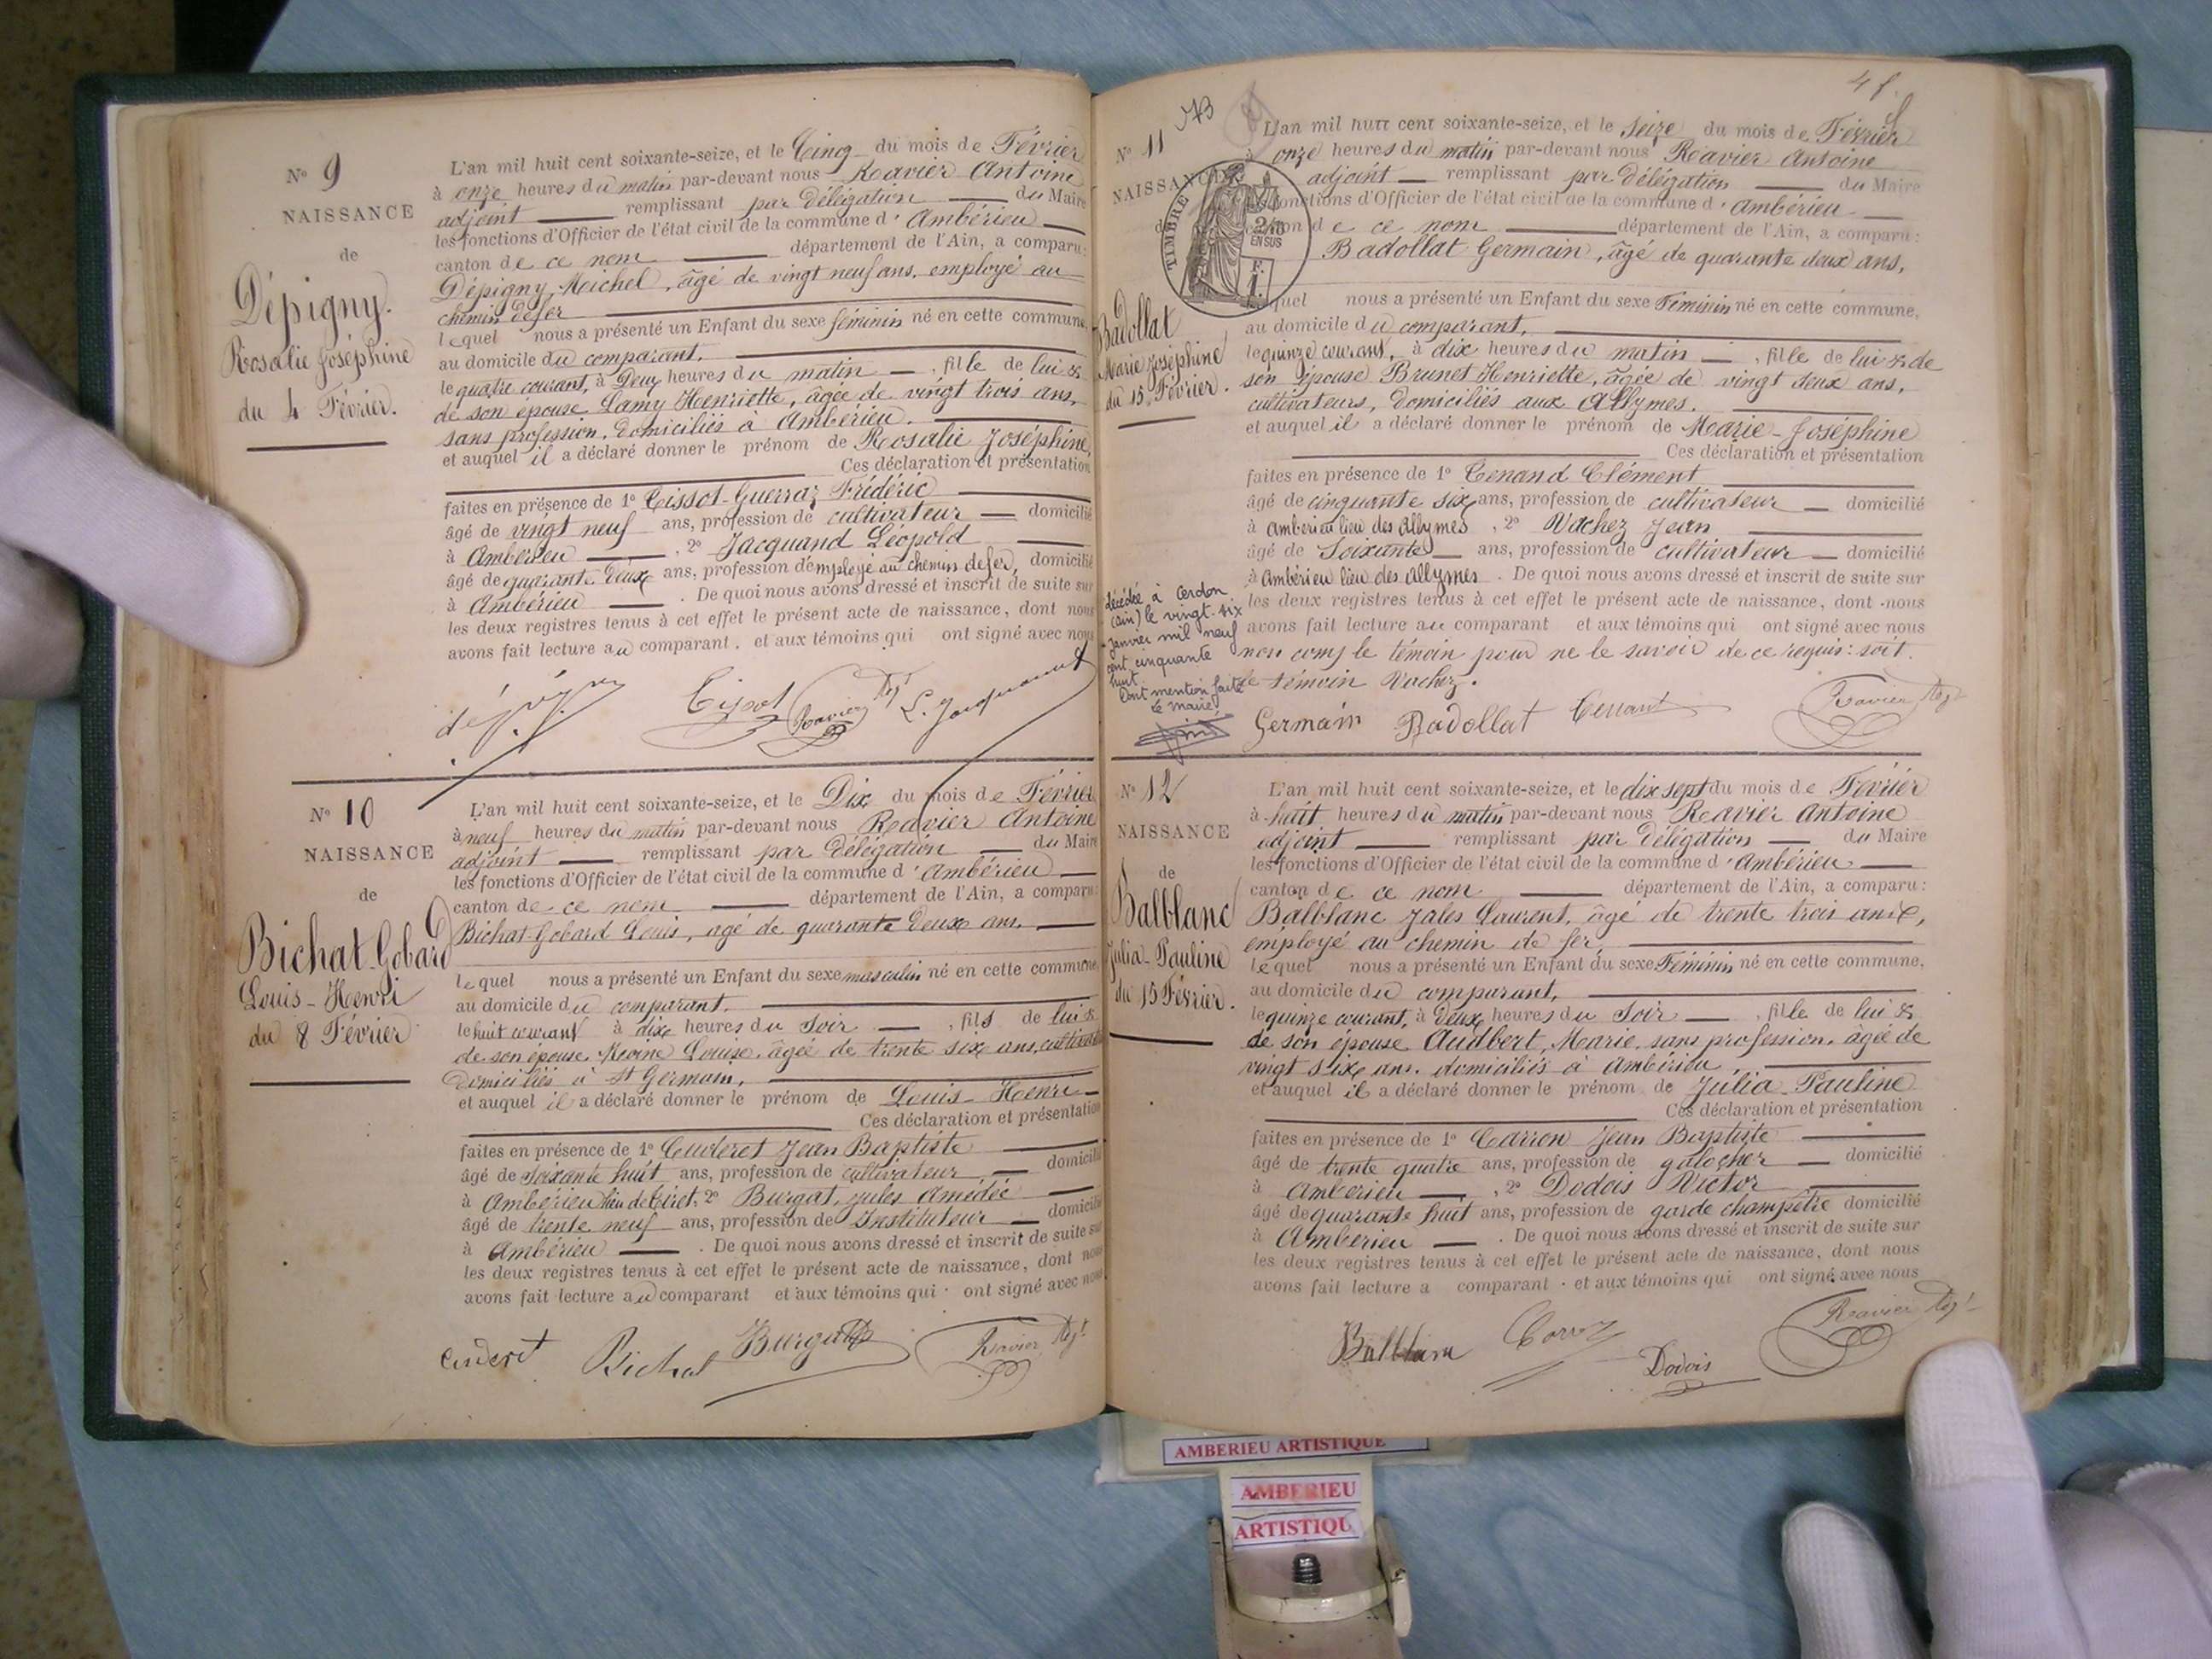 N° 9
NAISSANCE
de
Dépigny.
Rosalie Joséphine
du 4 Février.
L'an mil huit cent soixante-seize, et le Cinq du mois de Février
à onze heures du matin par-devant nous Ravier Antoine
adjoint remplissant par Délégation du Maire
les fonctions d'Officier de l'état civil de la commune d'Ambérieu
canton de ce nom département de l'Ain, a comparu:
Dépigny, Michel, âgé de vingt neuf ans, employé au
chemin de fer
lequel nous a présenté un Enfant du sexe féminin né en cette commune,
au domicile du comparant.
le quatre courant, à Deux heures du matin, fille de lui &
de son épouse Lamy Henriette, âgée de vingt trois ans,
sans profession, domiciliés à Ambérieu.
et auquel il a déclaré donner le prénom de Rosalie Joséphine,
Ces déclaration et présentation
faites en présence de 1° Tissot-Guerraz Frédéric
âgé de vingt neuf ans, profession de cultivateur domicilié
à Ambérieu, 2° Jacquand Léopold
âgé de quarante Deux ans, profession d'employé au chemin de fer, domicilié
à Ambérieu. De quoi nous avons dressé et inscrit de suite sur
les deux registres tenus à cet effet le présent acte de naissance, dont nous
avons fait lecture au comparant. et aux témoins qui ont signé avec nous
dépigny Tissot Ravier Adjt L. Jacquand
N° 10
NAISSANCE
de
Bichat-Gobard
Louis-Henri
du 8 Février
L'an mil huit cent soixante-seize, et le Dix du mois de Février
à neuf heures du matin par-devant nous Ravier Antoine
adjoint remplissant par Délégation du Maire
les fonctions d'Officier de l'état civil de la commune d'Ambérieu
canton de ce nom département de l'Ain, a comparu:
Bichat-Gobard Louis, âgé de quarante Deux ans,
lequel nous a présenté un Enfant du sexe masculin né en cette commune,
au domicile du comparant.
le huit courant à dix heures du Soir, fils de lui &
de son épouse Louise, âgée de trente six ans, cultivateurs
Domiciliés à St Germain,
et auquel il a déclaré donner le prénom de Louis-Henri
Ces déclaration et présentation
faites en présence de 1° Cuderet Jean Baptiste
âgé de soixante huit ans, profession de cultivateur domicilié
à Ambérieu lieu de Tiret, 2° Burgat, Jules Amédée
âgé de trente neuf ans, profession de Instituteur domicilié
à Ambérieu. De quoi nous avons dressé et inscrit de suite sur
les deux registres tenus à cet effet le présent acte de naissance, dont nous
avons fait lecture au comparant et aux témoins qui ont signé avec nous
Cuderet Bichat Burgat Ravier Adjt
4 f.
N° 11
NAISSANCE
TIMBRE
2/10
EN SUS
F.
1.
Badollat
Marie Joséphine
du 15 Février.
décédée à Cerdon
(ain) le vingt-six
janvier mil neuf
cent cinquante
huit
Dont mention faite
Le maire
L'an mil huit cent soixante-seize, et le seize du mois de Février
à onze heures du matin par-devant nous Ravier Antoine
adjoint remplissant par Délégation du Maire
les fonctions d'Officier de l'état civil de la commune d'Ambérieu
canton de ce nom département de l'Ain, a comparu:
Badollat Germain, âgé de quarante deux ans,
lequel nous a présenté un Enfant du sexe Féminin né en cette commune,
au domicile du comparant,
le quinze courant, à dix heures du matin, fille de lui & de
son épouse Brunet Henriette, âgée de vingt deux ans,
cultivateurs, domiciliés aux Allymes.
et auquel il a déclaré donner le prénom de Marie-Joséphine
Ces déclaration et présentation
faites en présence de 1° Tenand Clément
âgé de cinquante six ans, profession de cultivateur domicilié
à Ambérieu lieu des Allymes, 2° Vachez Jean
âgé de Soixante ans, profession de cultivateur domicilié
à Ambérieu lieu des Allymes. De quoi nous avons dressé et inscrit de suite sur
les deux registres tenus à cet effet le présent acte de naissance, dont nous
avons fait lecture au comparant et aux témoins qui ont signé avec nous
non comp le témoin pour ne le savoir de ce requis: soit.
le témoin Vachez.
Germain Badollat Tenant Ravier Adjt
N° 12
NAISSANCE
de
Balblanc
Julia-Pauline
du 15 Février.
L'an mil huit cent soixante-seize, et le dix sept du mois de Février
à huit heures du matin par-devant nous Ravier Antoine
adjoint remplissant par Délégation du Maire
les fonctions d'Officier de l'état civil de la commune d'Ambérieu
canton de ce nom département de l'Ain, a comparu:
Balblanc Jules Laurent, âgé de trente trois ans,
employé au chemin de fer,
lequel nous a présenté un Enfant du sexe Féminin né en cette commune,
au domicile du comparant,
le quinze courant, à Deux heures du Soir, fille de lui &
de son épouse Audbert, Marie, sans profession, âgée de
vingt six ans, domiciliés à Ambérieu
et auquel il a déclaré donner le prénom de Julia-Pauline
Ces déclaration et présentation
faites en présence de 1° Carron Jean Baptiste
âgé de trente quatre ans, profession de galocher domicilié
à Ambérieu, 2° Dodois Victor
âgé de quarante huit ans, profession de garde champêtre domicilié
à Ambérieu. De quoi nous avons dressé et inscrit de suite sur
les deux registres tenus à cet effet le présent acte de naissance, dont nous
avons fait lecture a comparant. et aux témoins qui ont signé avec nous
Balblanc Dodois Ravier Adjt
AMBERIEU ARTISTIQUE
AMBERIEU
ARTISTIQU